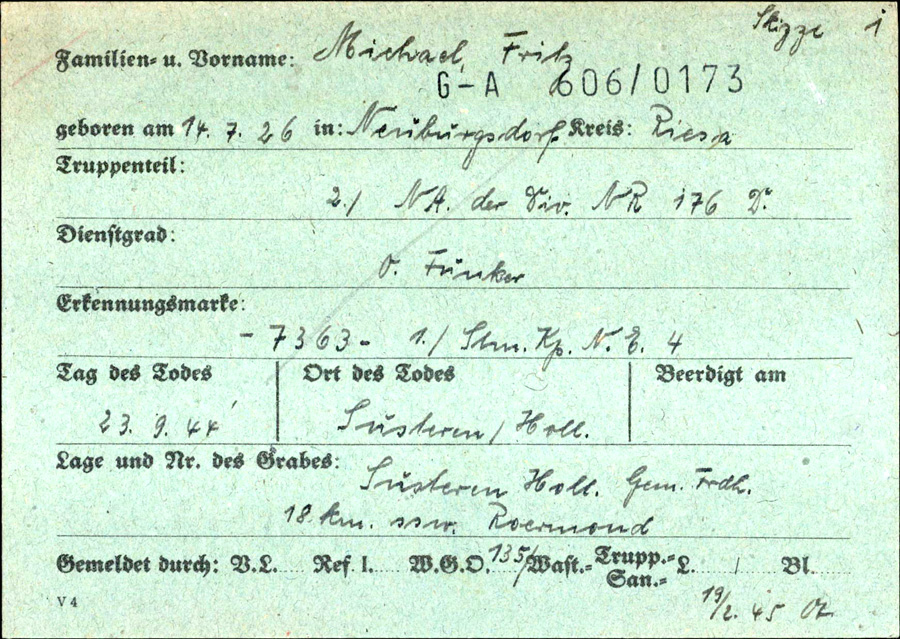 Skizze 1
Familien- u. Vorname: Michael, Fritz
G-A 606/0173
geboren am 14. 7. 26 in: Neuburgsdorf Kreis: Riesa
Truppenteil:
2./ NA. der Div. NR 176 D.
Dienstgrad:
O. Funker
Erkennungsmarke:
- 7363 - 1./ Stm. Kp. N. E. 4
Tag des Todes Ort des Todes Beerdigt am
23. 9. 44 Susteren / Holl.
Lage und Nr. des Grabes: Susteren Holl. Gem. Frdh.
18 km. ssw. Roermond
Gemeldet durch: V.L. Ref. I. W.G.O. 135/ Wast.- Trupp.- San.- L. / Bl.
V 4 19/2. 45